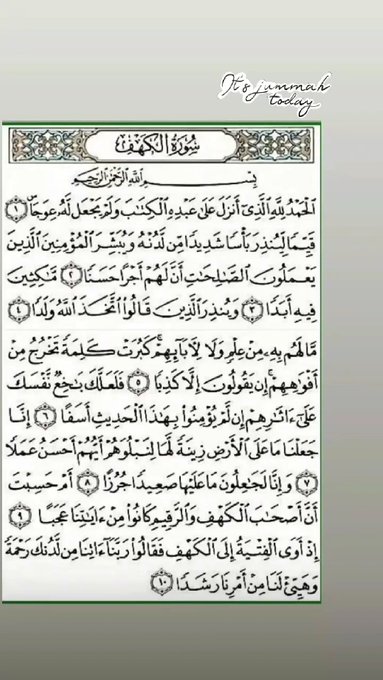 It's jummah
today
سُورَةُ الْكَهْفِ
بِسْمِ اللَّهِ الرَّحْمَٰنِ الرَّحِيمِ
الْحَمْدُ لِلَّهِ الَّذِي أَنزَلَ عَلَىٰ عَبْدِهِ الْكِتَابَ وَلَمْ يَجْعَل لَّهُ عِوَجًا ١
قَيِّمًا لِّيُنذِرَ بَأْسًا شَدِيدًا مِّن لَّدُنْهُ وَيُبَشِّرَ الْمُؤْمِنِينَ الَّذِينَ
يَعْمَلُونَ الصَّالِحَاتِ أَنَّ لَهُمْ أَجْرًا حَسَنًا ٢ مَّاكِثِينَ
فِيهِ أَبَدًا ٣ وَيُنذِرَ الَّذِينَ قَالُوا اتَّخَذَ اللَّهُ وَلَدًا ٤
مَّا لَهُم بِهِ مِنْ عِلْمٍ وَلَا لِآبَائِهِمْ ۚ كَبُرَتْ كَلِمَةً تَخْرُجُ مِنْ
أَفْوَاهِهِمْ ۚ إِن يَقُولُونَ إِلَّا كَذِبًا ٥ فَلَعَلَّكَ بَاخِعٌ نَّفْسَكَ
عَلَىٰ آثَارِهِمْ إِن لَّمْ يُؤْمِنُوا بِهَٰذَا الْحَدِيثِ أَسَفًا ٦ إِنَّا
جَعَلْنَا مَا عَلَى الْأَرْضِ زِينَةً لَّهَا لِنَبْلُوَهُمْ أَيُّهُمْ أَحْسَنُ عَمَلًا
٧ وَإِنَّا لَجَاعِلُونَ مَا عَلَيْهَا صَعِيدًا جُرُزًا ٨ أَمْ حَسِبْتَ
أَنَّ أَصْحَابَ الْكَهْفِ وَالرَّقِيمِ كَانُوا مِنْ آيَاتِنَا عَجَبًا ٩
إِذْ أَوَى الْفِتْيَةُ إِلَى الْكَهْفِ فَقَالُوا رَبَّنَا آتِنَا مِن لَّدُنكَ رَحْمَةً
وَهَيِّئْ لَنَا مِنْ أَمْرِنَا رَشَدًا ١٠